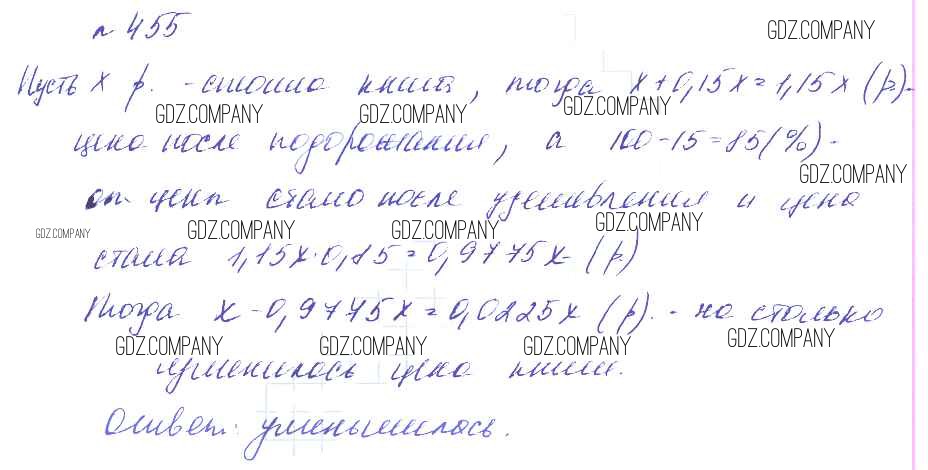 № 455
GDZ.COMPANY
Пусть x р. - стоила книга, тогда x+0,15x=1,15x (р.)-
GDZ.COMPANY GDZ.COMPANY GDZ.COMPANY
цена после подорожания, а 100-15=85(%)-
GDZ.COMPANY
от цены стало после удешевления и цена
GDZ.COMPANY GDZ.COMPANY GDZ.COMPANY GDZ.COMPANY
стала 1,15x·0,85=0,9775x (р.)
Тогда x-0,9775x=0,0225x (р). - на столько
GDZ.COMPANY GDZ.COMPANY GDZ.COMPANY GDZ.COMPANY
цена книги.
Ответ: уменьшилась.